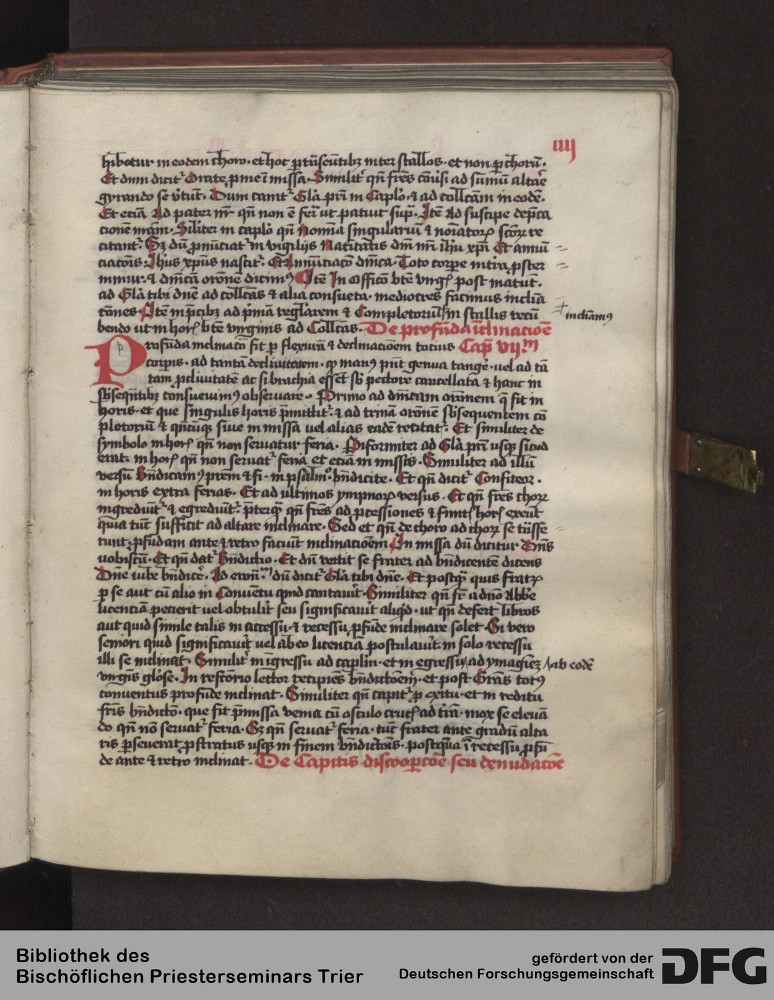 iiij
hibetur in eodem choro. et hoc ꝑ tūseūtibꝫ inter stallos. et non ꝑ chorū.
Et dum dicit᷑ Orate ꝓ me ī missa. Similit᷑ qn̄ fr̄es cōuersi ad sūmū altare
gyrando se v̄tūt. Dum cantat᷑ Gl̄a pr̄i in Cap̄lo. ⁊ ad collc̄am in eodē.
Et etiā Ad pater nr̄ qn̄ non ē fer̄ ut patuit sup̄. Itē Ad suscipe dep̄ca
cionē nr̄am. Siliter in caplo qn̄ Nomīa singulariū ⁊ nōnatoꝝ scōꝝ re
citant᷑. Sꝫ dū ꝓnūciat᷑ in vigilijs Natiuitatis dn̄i nr̄i ih̄u xp̄i Et annū
ciacōnis. Ih̄us xp̄us nascit᷑. Et Annūciacō dn̄ica. Toto corꝑe
nimur. ⁊ dn̄icā orōnē dicimꝰ Itē In officō btē v̄ng᷑ post matut̄.
ad Gl̄a tibi dn̄e ad collc̄as ⁊ alia consueta. mediocres facimus inclīa
cōnes. Itē in p̄cibꝫ ad p̄mā regl̄arem ⁊ Completoriū in stallis recū
+ inclīamꝰ
bendo ut in hor̄ btē virginis ad Collc̄as. De profūda īclinacioē
Cap̄ vij.m̄
p
Profūda inclinacō fit ꝑ flexurā ⁊ declinacioēm tocius
corpis. ad tantā decliuitatem. ꝙ manꝰ pn̄t genua tangē. vel ad tā
tam ꝓcliuitatē ac si brachia essēt sb̄ pectore cancellata ⁊ hanc in
sb̄seqn̄tibꝫ consueuimꝰ obseruare. Primo ad dn̄icam orōnem q̄ fit in
horis. et que singulis horis p̄mittit᷑. ⁊ ad trinā orōnē sb̄sequentem cō
plotoriū ⁊ qn̄cūqꝫ siue in missa vel alias eadē recitat᷑. Et similiter de
symbolo in hor̄ qn̄ non seruatur feria. Disformiter ad Gl̄a pr̄i usqꝫ sicud
erat. in hor̄ qn̄ non seruat᷑ feria et etiā in missis. Similiter ad illū
versū Bn̄dicamꝰ prem̄ ⁊ fi. in psalmo. bn̄dicite. Et qn̄ dicit᷑ Confiteor.
in horis extra ferias. Et ad vltimos ympnoꝝ versus. Et qn̄ fr̄es chorū
ingrediūt᷑ ⁊ egrediūt᷑. p̄terqꝫ qn̄ fr̄es ad ꝓcessiones ⁊ finit̄ hor̄ exeūt
qua tūc sufficit ad altare inclinare. Sed et qn̄ de choro ad choꝝ se trāsfe
runt. ꝓfūdam ante ⁊ retro faciūt inclinacioēm. In missa dū dicitur. Dn̄s
vobiscū. Et qn̄ dat᷑ Bn̄dictio. Et dū vertit se frater ad bn̄dicentē dicens
Dn̄e iube bn̄dicē. Ad ewn̄.m̄ dū dicit᷑ Gl̄a tibi dn̄e. Et postqꝫ quis fratꝝ
ꝑ se aut cū alio in Conuētu quid cantauit. Similiter qn̄ fr̄ a dn̄o Abbē
licenciā petierit vel obtulit seu significauit aliqͥd. ut qn̄ defert libros
aut quid simile talis in accessu. ⁊ recessu. ꝓfūde inclinare solet. Si vero
seniori quid significauit vel ab eo licenciā postulauit in solo recessu
illi se inclinat. Similit᷑ in īgressu ad caplm̄. et in egressu /ad ymaginē
/ab eodē
virginis gl̄ose. In refc̄orio lector recipiēs bn̄dictōem. et post Grās totꝰ
conuentus profūde inclinat. Similiter qn̄ capit᷑ ꝓ exitu. et in reditu
fr̄is bn̄dictō. que fit p̄missa venia cū osculo cruc̄ ad trā. mox se eleuā
do qn̄ nō seruat᷑ feria. Sꝫ qn̄ seruat᷑ feria. tūc frater ante gradū alta
ris ꝑseuerat ꝓstratus usqꝫ in finem bn̄dictōis. postqͣꝫ ī recessu ꝓfū
de ante ⁊ retro inclinat. De Capitis discooꝑtōe seu denudacōe
Bibliothek des
Bischöflichen Priesterseminars Trier
gefördert von der
Deutschen Forschungsgemeinschaft
DFG